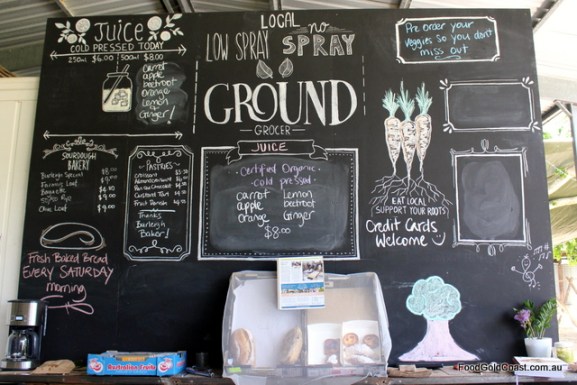 Juice
COLD PRESSED TODAY
250ml $6.00 500ml $8.00
carrot
apple
beetroot
orange
Lemon
Ginger!
LOCAL
LOW SPRAY
no
SPRAY
GROUND
GROCER
Pre order your
veggies so you don't
miss out
SOURDOUGH
BAKERY
Burleigh Special
Baguette
Olive Loaf
PASTRIES
Croissants
Custard Tart
Fruit Danish
Thanks
Burleigh
Baker!
JUICE
Certified Organic
cold pressed
carrot Lemon
apple beetroot
orange Ginger
$8.00
EAT LOCAL
SUPPORT YOUR ROOTS
Credit Cards
Welcome
Fresh Baked Bread
EVERY SATURDAY
morning
FoodGoldCoast.com.au